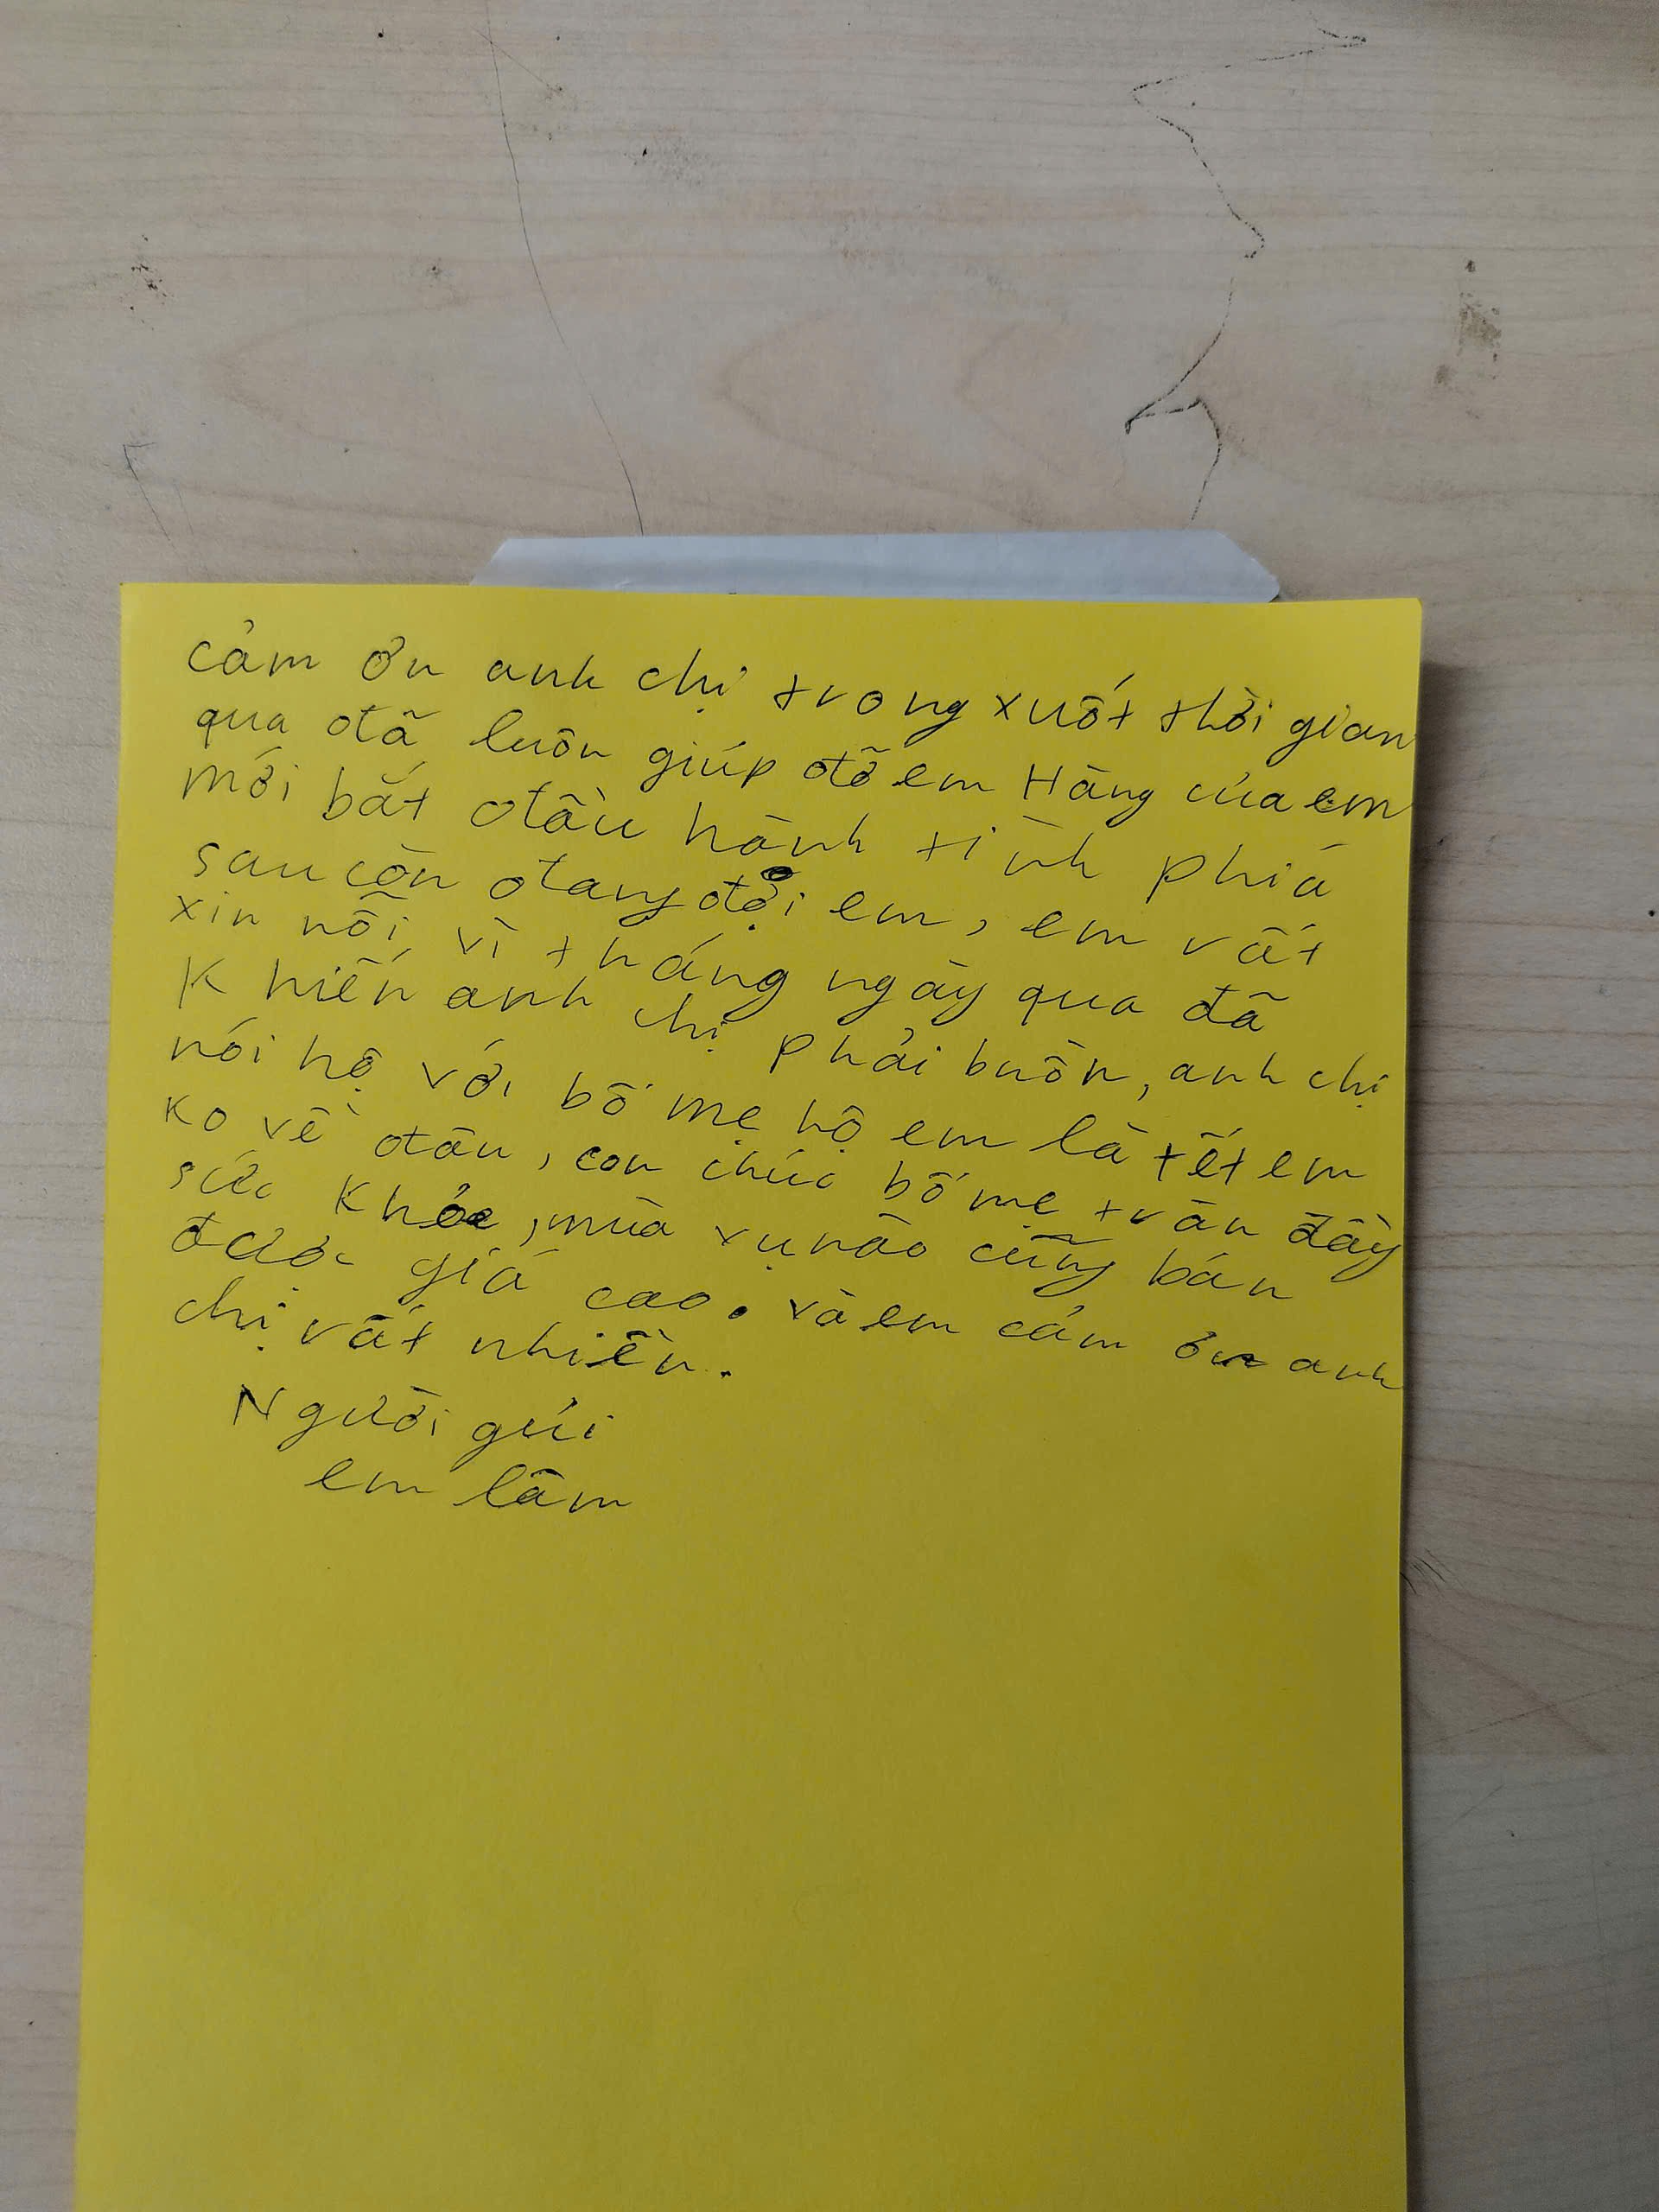 cảm ơn anh chị trong xuốt thời gian
qua đã luôn giúp đỡ em Hàng của em
mới bắt đầu hành tình phiá
sau còn đang đợi em, em rất
xin nỗi, vì tháng ngày qua đã
Khiến anh chị phải buồn, anh chị
nói hộ với bố mẹ hộ em là tết em
ko về đâu, con chúc bố mẹ tràn đầy
sức khỏe, mùa vụ nào cũng bán
được giá cao. và em cảm ơn anh
chị rất nhiền.
Người gửi
em lâm